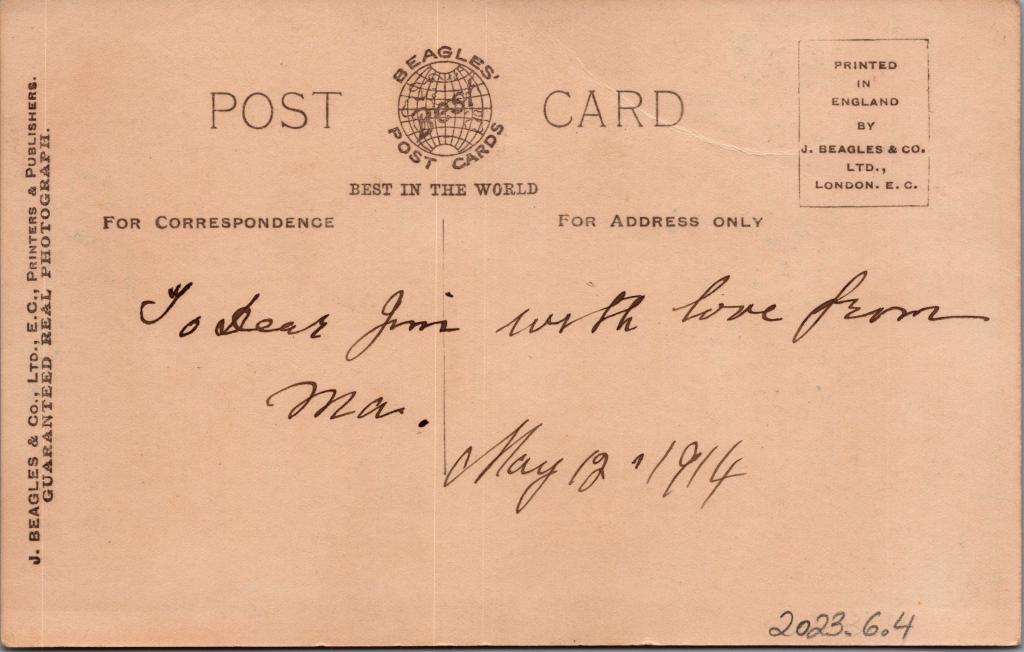 J. BEAGLES & CO., LTD., E.C., PRINTERS & PUBLISHERS.
GUARANTEED REAL PHOTOGRAPH.
POST CARD
BEAGLES'
Best
POST CARDS
BEST IN THE WORLD
PRINTED
IN
ENGLAND
BY
J. BEAGLES & CO.
LTD.,
LONDON. E. C.
FOR CORRESPONDENCE
FOR ADDRESS ONLY
To Dear Jim with love from
Ma.
May 12, 1914
2023.6.4